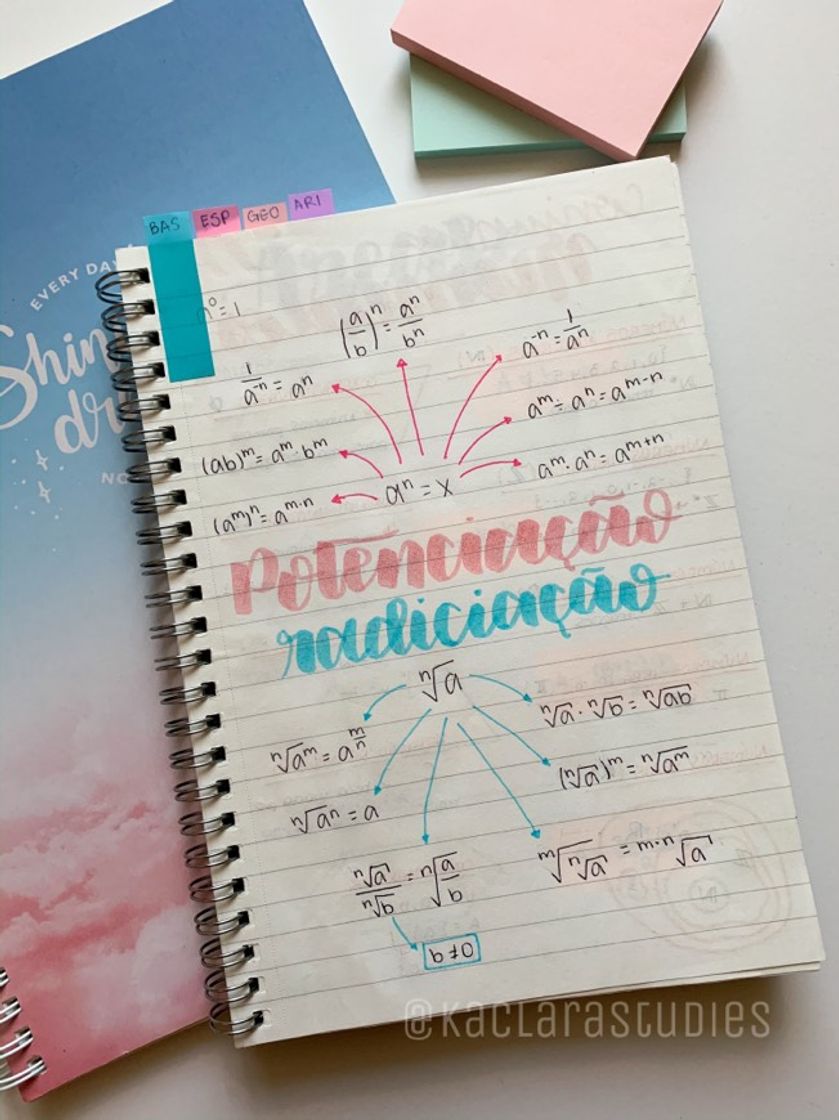 BAS ESP GEO ARI
EVERY DAY
a⁰ = 1
(a/b)ⁿ = aⁿ/bⁿ
a⁻ⁿ = 1/aⁿ
1/a⁻ⁿ = aⁿ
aᵐ ÷ aⁿ = aᵐ⁻ⁿ
(ab)ᵐ = aᵐ · bᵐ
aᵐ · aⁿ = aᵐ⁺ⁿ
(aᵐ)ⁿ = aᵐ·ⁿ
aⁿ = x
Potenciação
radiciação
ⁿ√a
ⁿ√a · ⁿ√b = ⁿ√ab
ⁿ√aᵐ = a^(m/n)
(ⁿ√a)ᵐ = ⁿ√aᵐ
ⁿ√aⁿ = a
ⁿ√a / ⁿ√b = ⁿ√(a/b)
ᵐ√ⁿ√a = ᵐ·ⁿ√a
b ≠ 0
@KACLARASTUDIES